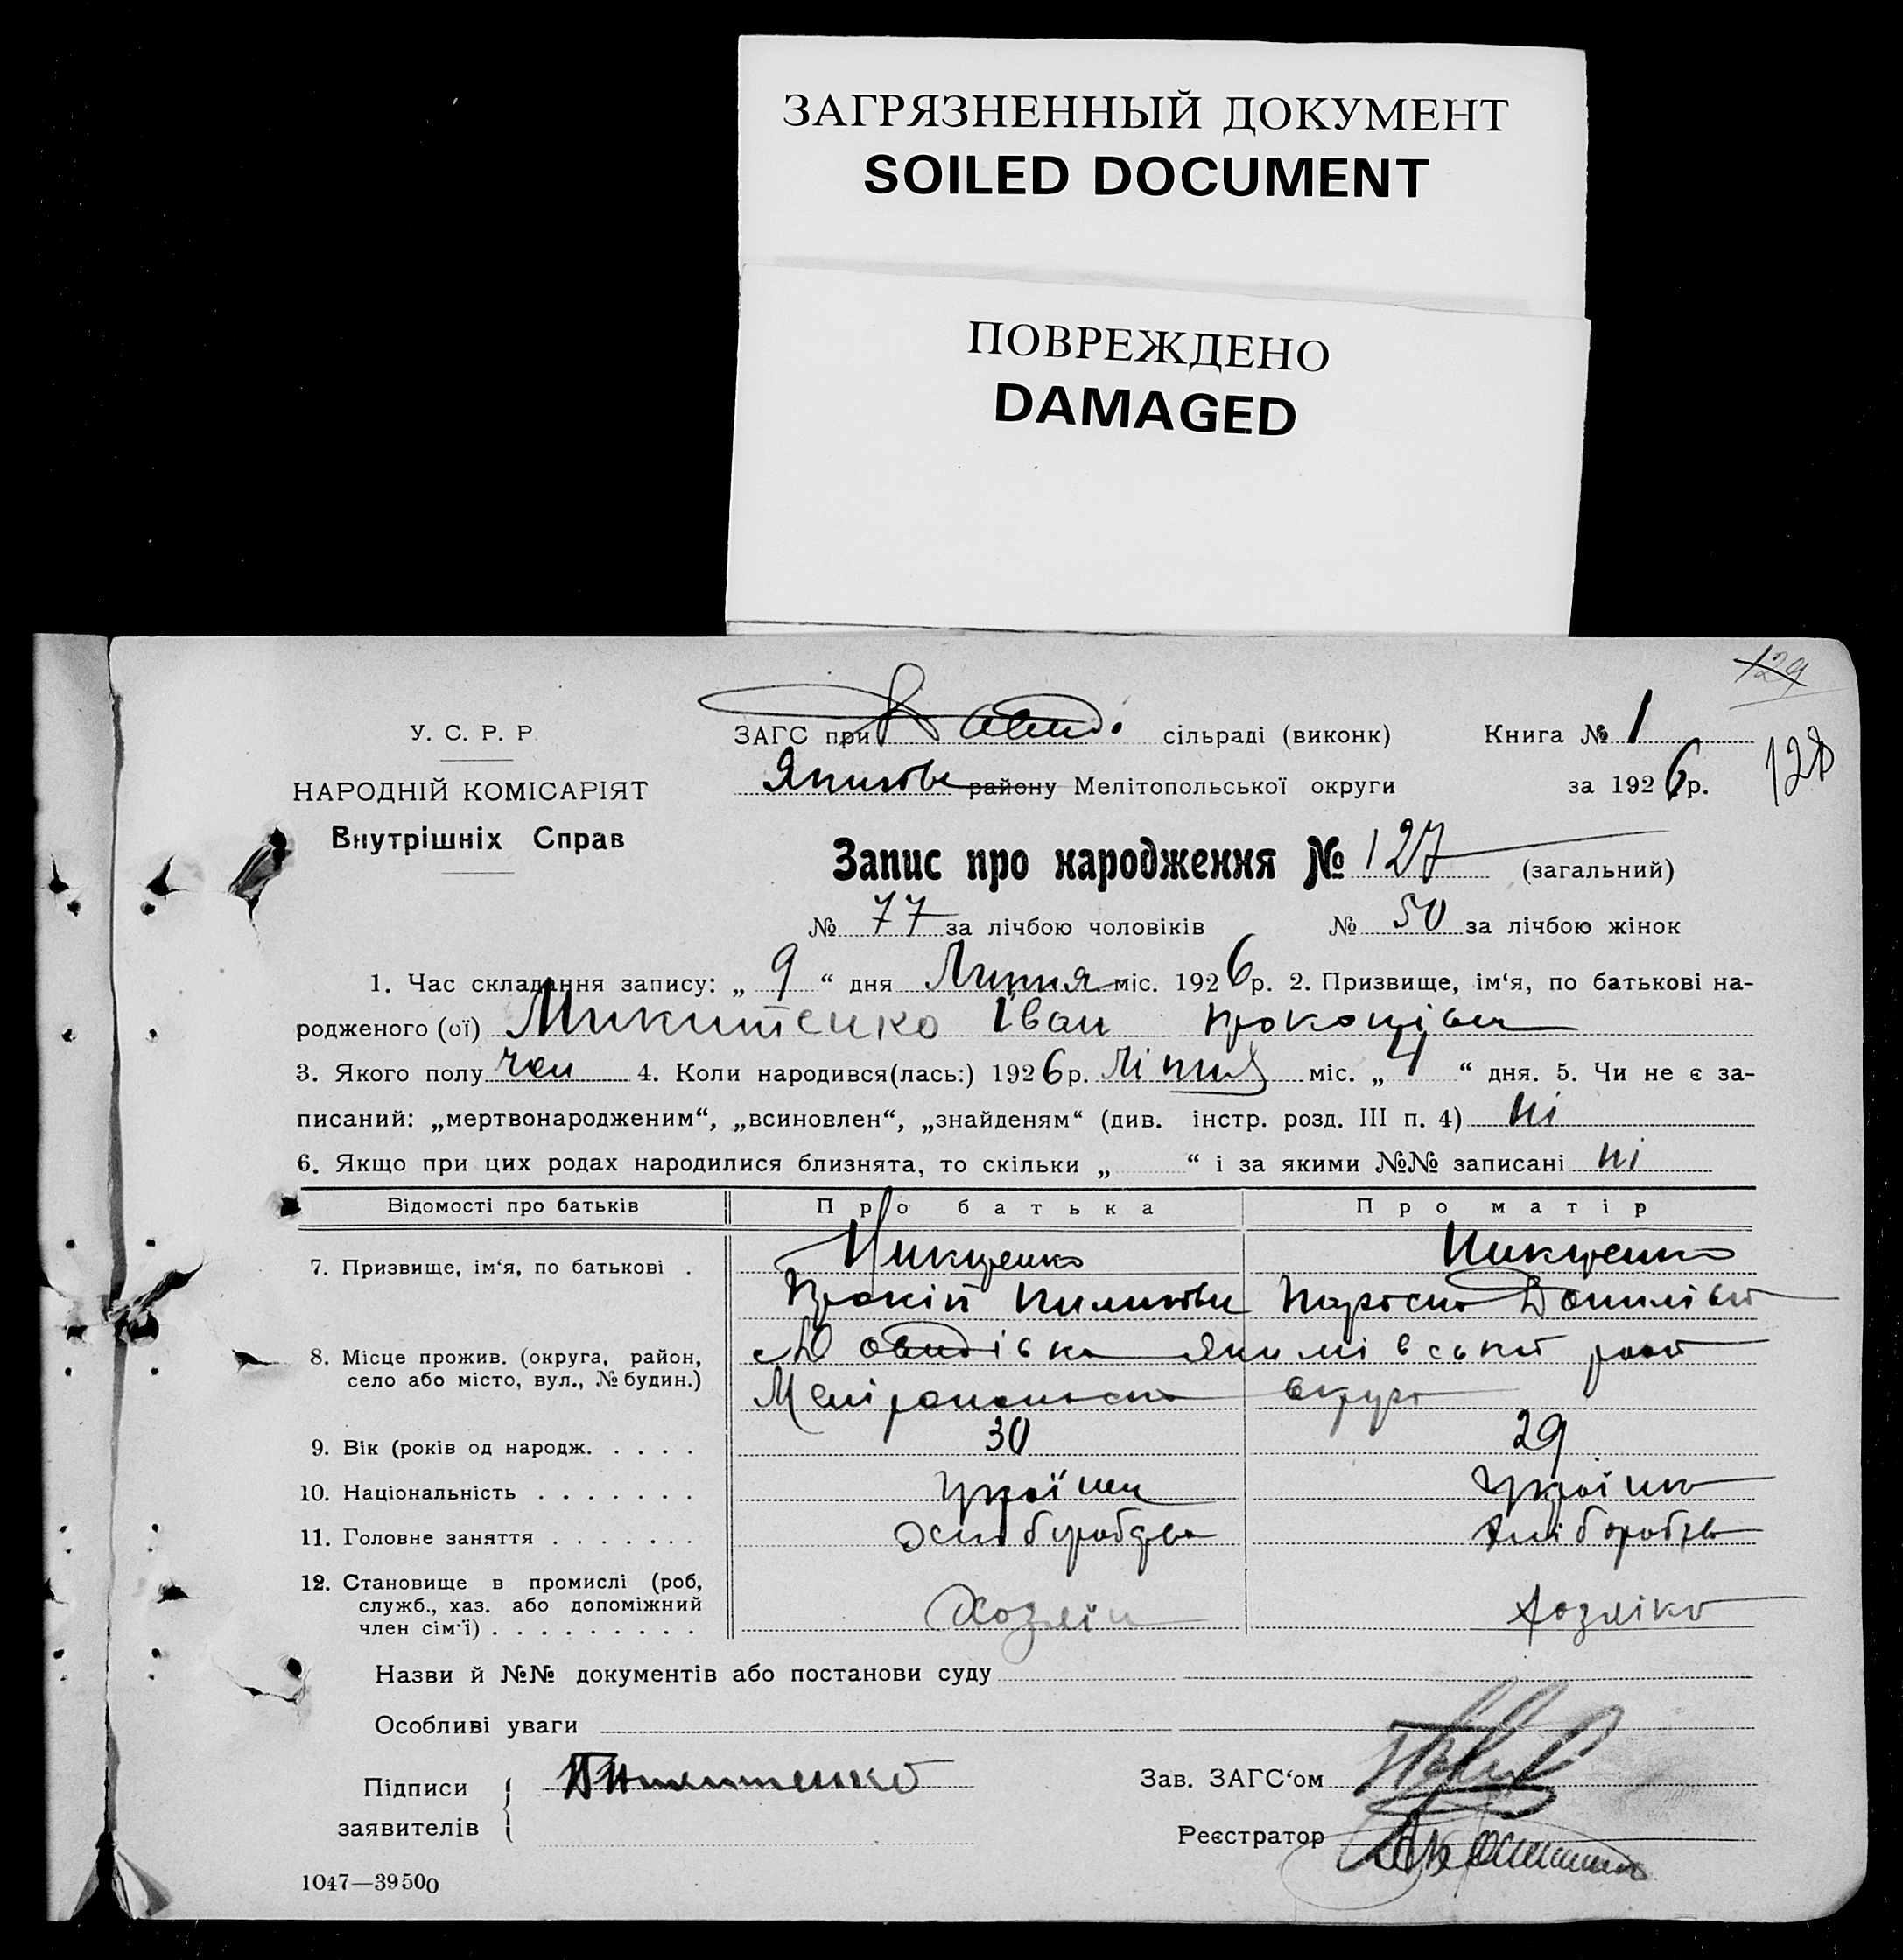 ЗАГРЯЗНЕННЫЙ ДОКУМЕНТ
SOILED DOCUMENT
ПОВРЕЖДЕНО
DAMAGED
129
У. С. Р. Р.
ЗАГС при сільраді (виконк)
Книга № 1
НАРОДНІЙ КОМІСАРІЯТ
Якимів району Мелітопольської округи
за 1926 р.
128
Внутрішніх Справ
Запис про народження № 127 (загальний)
№ 77 за лічбою чоловіків № 50 за лічбою жінок
1. Час складання запису: „ 9 “ дня Липня міс. 1926 р. 2. Призвище, ім‘я, по батькові на-
родженого (ої) Микитенко Іван
3. Якого полу чол 4. Коли народився(лась:) 1926 р. міс. „ “ дня. 5. Чи не є за-
писаний: „мертвонародженим“, „всиновлен“, „знайденям“ (див. інстр. розд. III п. 4) ні
6. Якщо при цих родах народилися близнята, то скільки „ “ і за якими №№ записані ні
Відомості про батьків Про батька Про матір
7. Призвище, ім‘я, по батькові . Микитенко Микитенко
8. Місце прожив. (округа, район,
село або місто, вул., № будин.)
Якимівський
округа
9. Вік (років од народж. . . . . 30 29
10. Національність . . . . . . . Українец Українка
11. Головне заняття . . . . . . . Хліборобство Хліборобство
12. Становище в промислі (роб,
служб., хаз. або допоміжний
член сім‘ї) . . . . . . . . . Хозяїн Хозяїка
Назви й №№ документів або постанови суду
Особливі уваги
Підписи
заявителів
Микитенко
Зав. ЗАГС‘ом
Реєстратор
1047—39500